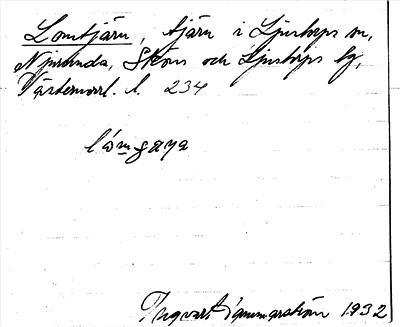 Lomtjärn, tjärn i Ljustorps sn,
Njurunda, Sköns och Ljustorps tg,
Västernorrl. l. 234
lómgaya
Ingvar Hammarström 1932